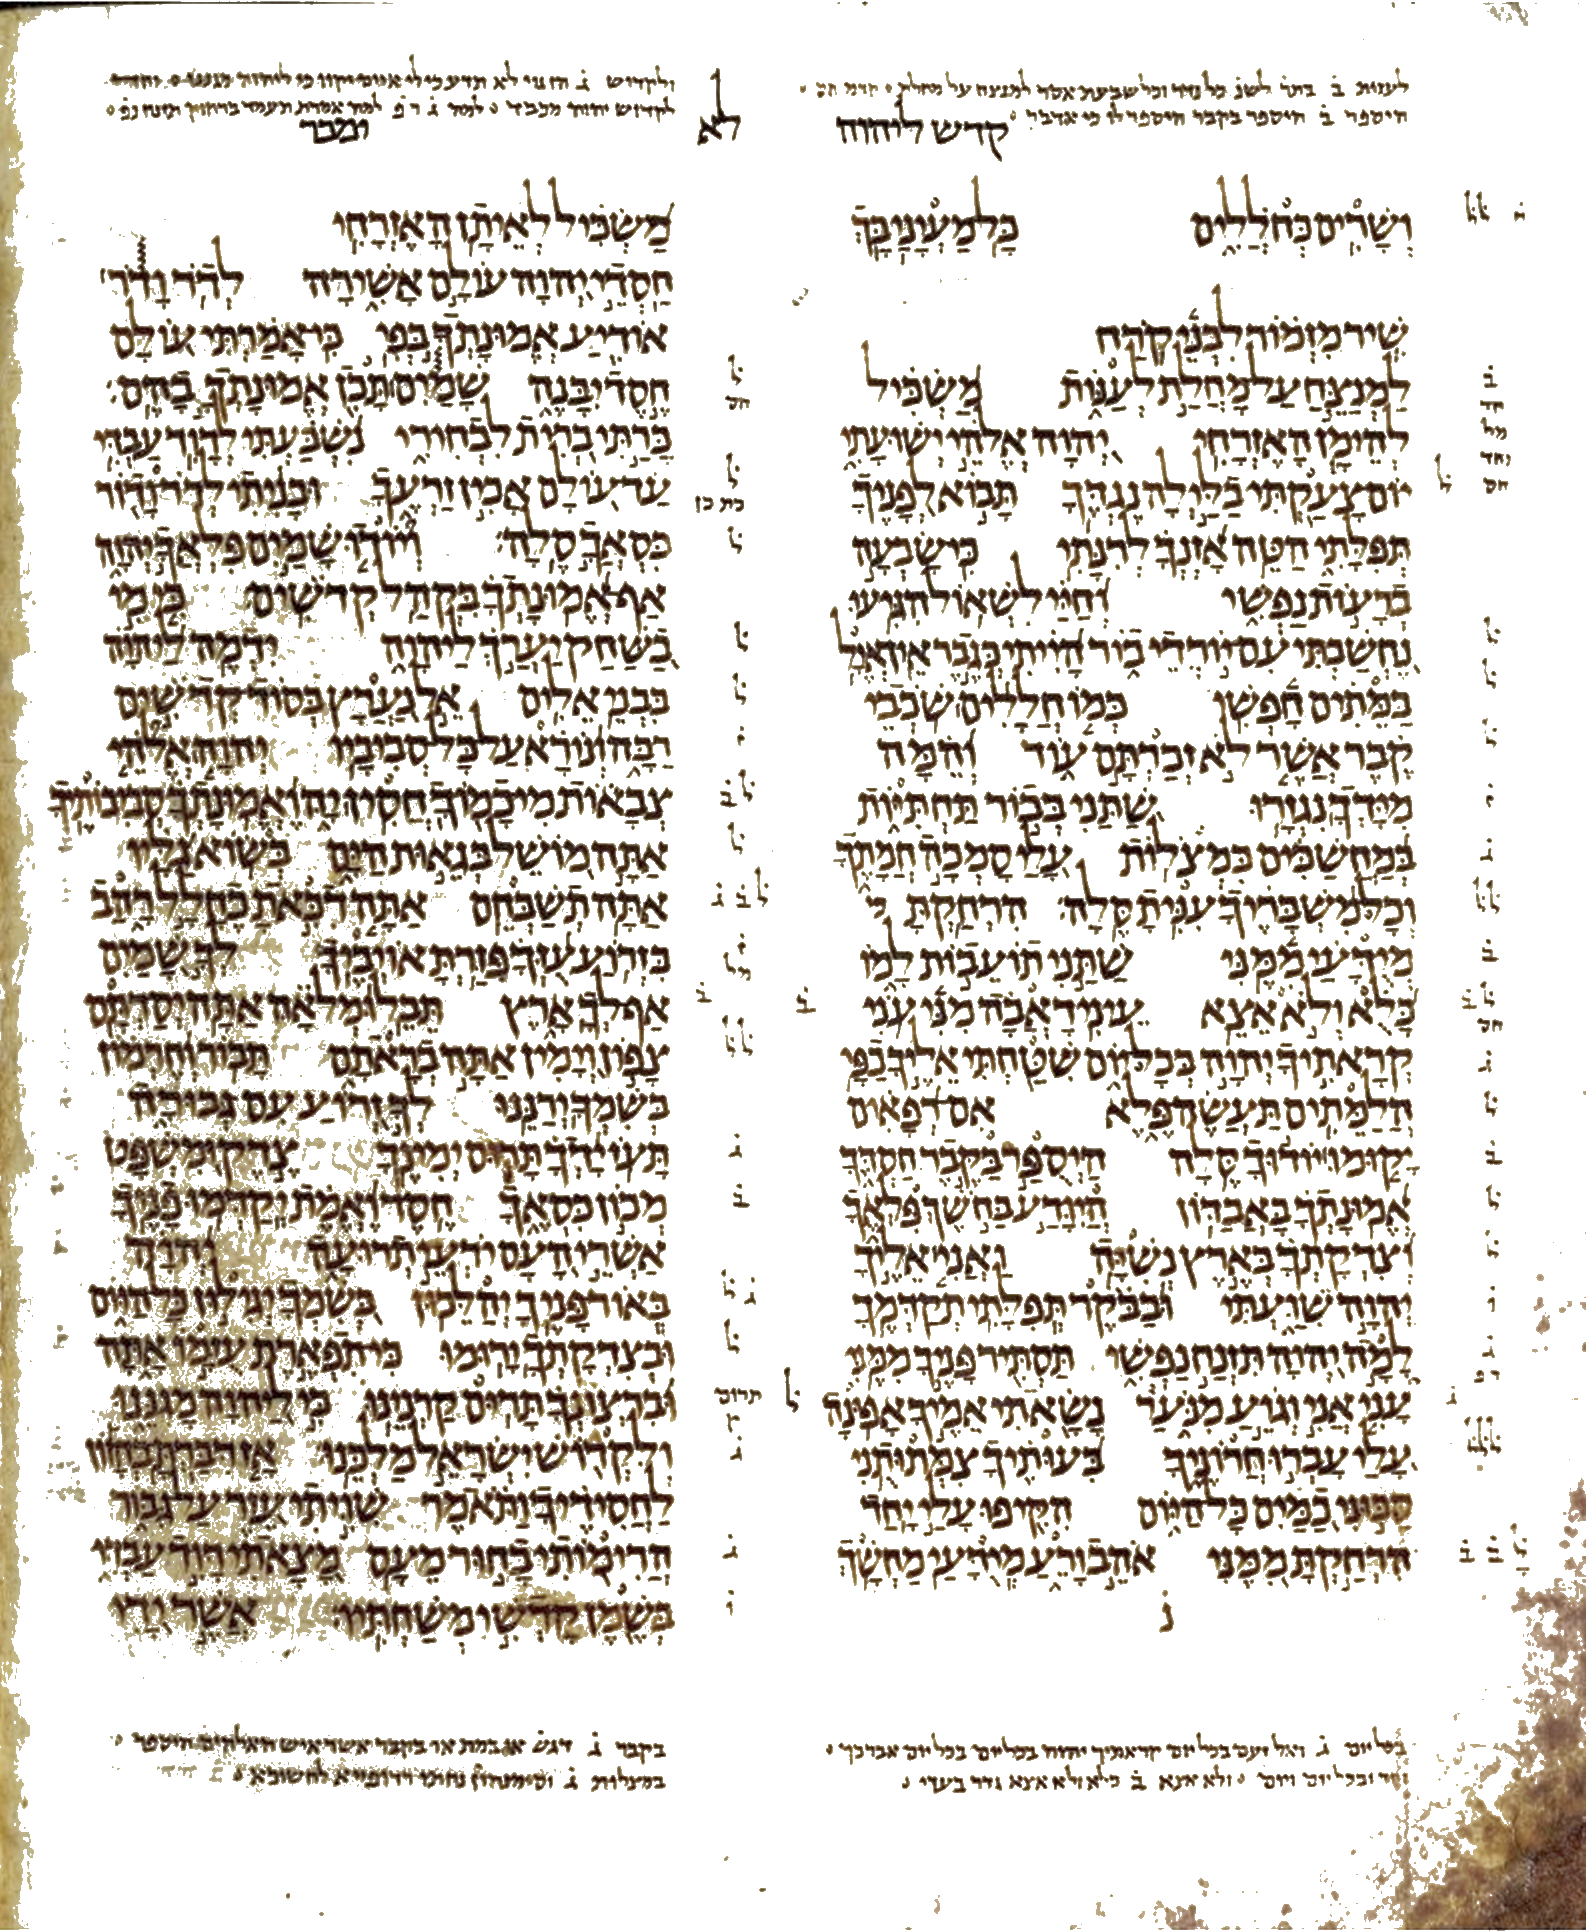 לענות ב בתר לשנ כל נדר וכל שבעת אסר למנצח על מחלת
היספר ב היספר בקבר היספר לו כי אדבר
קדש ליהוה
וְשָׁרִים כְּחֹלְלִים כָּל מַעְיָנַי בָּךְ
שִׁיר מִזְמוֹר לִבְנֵי קֹרַח
לַמְנַצֵּחַ עַל מָחֲלַת לְעַנּוֹת מַשְׂכִּיל
לְהֵימָן הָאֶזְרָחִי יְהוָה אֱלֹהֵי יְשׁוּעָתִי
יוֹם צָעַקְתִּי בַלַּיְלָה נֶגְדֶּךָ תָּבוֹא לְפָנֶיךָ
תְּפִלָּתִי הַטֵּה אָזְנְךָ לְרִנָּתִי כִּי שָׂבְעָה
בְרָעוֹת נַפְשִׁי וְחַיַּי לִשְׁאוֹל הִגִּיעוּ
נֶחְשַׁבְתִּי עִם יוֹרְדֵי בוֹר הָיִיתִי כְּגֶבֶר אֵין אֱיָל
בַּמֵּתִים חָפְשִׁי כְּמוֹ חֲלָלִים שֹׁכְבֵי
קֶבֶר אֲשֶׁר לֹא זְכַרְתָּם עוֹד וְהֵמָּה
מִיָּדְךָ נִגְזָרוּ שַׁתַּנִי בְּבוֹר תַּחְתִּיּוֹת
בְּמַחֲשַׁכִּים בִּמְצֹלוֹת עָלַי סָמְכָה חֲמָתֶךָ
וְכָל מִשְׁבָּרֶיךָ עִנִּיתָ סֶּלָה הִרְחַקְתָּ
מְיֻדָּעַי מִמֶּנִּי שַׁתַּנִי תוֹעֵבוֹת לָמוֹ
כָּלֻא וְלֹא אֵצֵא עֵינִי דָאֲבָה מִנִּי עֹנִי
קְרָאתִיךָ יְהוָה בְּכָל יוֹם שִׁטַּחְתִּי אֵלֶיךָ כַפָּי
הֲלַמֵּתִים תַּעֲשֶׂה פֶּלֶא אִם רְפָאִים
יָקוּמוּ יוֹדוּךָ סֶּלָה הַיְסֻפַּר בַּקֶּבֶר חַסְדֶּךָ
אֱמוּנָתְךָ בָּאֲבַדּוֹן הֲיִוָּדַע בַּחֹשֶׁךְ פִּלְאֶךָ
וְצִדְקָתְךָ בְּאֶרֶץ נְשִׁיָּה וַאֲנִי אֵלֶיךָ
יְהוָה שִׁוַּעְתִּי וּבַבֹּקֶר תְּפִלָּתִי תְקַדְּמֶךָּ
לָמָה יְהוָה תִּזְנַח נַפְשִׁי תַּסְתִּיר פָּנֶיךָ מִמֶּנִּי
עָנִי אֲנִי וְגוֵֹעַ מִנֹּעַר נָשָׂאתִי אֵמֶיךָ אָפוּנָה
עָלַי עָבְרוּ חֲרוֹנֶיךָ בִּעוּתֶיךָ צִמְּתוּתֻנִי
סַבּוּנִי כַמַּיִם כָּל הַיּוֹם הִקִּיפוּ עָלַי יָחַד
הִרְחַקְתָּ מִמֶּנִּי אֹהֵב וָרֵעַ מְיֻדָּעַי מַחְשָׁךְ
בכל יום ג ואל זעם בכל יום קראתיך יהוה בכל יום בכל יום אברכך
וחד ובכל יום ויום ולא אצא ב כלא ולא אצא גדר בעדי
ולקדוש ג הן גוי לא תדע כי לי איים יקוו כי ליהוה מגננו
לקדוש יהוה מכבד למה ג רפ למה יהוה תעמד ברחוק תזנח נפ
לא ימכר
מַשְׂכִּיל לְאֵיתָן הָאֶזְרָחִי
חַסְדֵי יְהוָה עוֹלָם אָשִׁירָה לְדֹר וָדֹר
אוֹדִיעַ אֱמוּנָתְךָ בְּפִי כִּי אָמַרְתִּי עוֹלָם
חֶסֶד יִבָּנֶה שָׁמַיִם תָּכִן אֱמוּנָתְךָ בָהֶם
כָּרַתִּי בְרִית לִבְחִירִי נִשְׁבַּעְתִּי לְדָוִד עַבְדִּי
עַד עוֹלָם אָכִין זַרְעֶךָ וּבָנִיתִי לְדֹר וָדוֹר
כִּסְאֲךָ סֶלָה וְיוֹדוּ שָׁמַיִם פִּלְאֲךָ יְהוָה
אַף אֱמוּנָתְךָ בִּקְהַל קְדֹשִׁים כִּי מִי
בַשַּׁחַק יַעֲרֹךְ לַיהוָה יִדְמֶה לַיהוָה
בִּבְנֵי אֵלִים אֵל נַעֲרָץ בְּסוֹד קְדֹשִׁים
רַבָּה וְנוֹרָא עַל כָּל סְבִיבָיו יְהוָה אֱלֹהֵי
צְבָאוֹת מִי כָמוֹךָ חֲסִין יָהּ וֶאֱמוּנָתְךָ סְבִיבוֹתֶיךָ
אַתָּה מוֹשֵׁל בְּגֵאוּת הַיָּם בְּשׂוֹא גַלָּיו
אַתָּה תְשַׁבְּחֵם אַתָּה דִכִּאתָ כֶחָלָל רָהַב
בִּזְרוֹעַ עֻזְּךָ פִּזַּרְתָּ אוֹיְבֶיךָ לְךָ שָׁמַיִם
אַף לְךָ אָרֶץ תֵּבֵל וּמְלֹאָהּ אַתָּה יְסַדְתָּם
צָפוֹן וְיָמִין אַתָּה בְרָאתָם תָּבוֹר וְחֶרְמוֹן
בְּשִׁמְךָ יְרַנֵּנוּ לְךָ זְרוֹעַ עִם גְּבוּרָה
תָּעֹז יָדְךָ תָּרוּם יְמִינֶךָ צֶדֶק וּמִשְׁפָּט
מְכוֹן כִּסְאֶךָ חֶסֶד וֶאֱמֶת יְקַדְּמוּ פָנֶיךָ
אַשְׁרֵי הָעָם יֹדְעֵי תְרוּעָה יְהוָה
בְּאוֹר פָּנֶיךָ יְהַלֵּכוּן בְּשִׁמְךָ יְגִילוּן כָּל הַיּוֹם
וּבְצִדְקָתְךָ יָרוּמוּ כִּי תִפְאֶרֶת עֻזָּמוֹ אָתָּה
וּבִרְצוֹנְךָ תָּרִים קַרְנֵינוּ כִּי לַיהוָה מָגִנֵּנוּ
וְלִקְדוֹשׁ יִשְׂרָאֵל מַלְכֵּנוּ אָז דִּבַּרְתָּ בְחָזוֹן
לַחֲסִידֶיךָ וַתֹּאמֶר שִׁוִּיתִי עֵזֶר עַל גִּבּוֹר
הֲרִימוֹתִי בָחוּר מֵעָם מָצָאתִי דָּוִד עַבְדִּי
בְּשֶׁמֶן קָדְשִׁי מְשַׁחְתִּיו אֲשֶׁר יָדִי
בקבר ג דגש או במת או בקבר אשר איש האלהים היספר
במצלות ג וסימנהון נחותי רדופייא לחשוכא